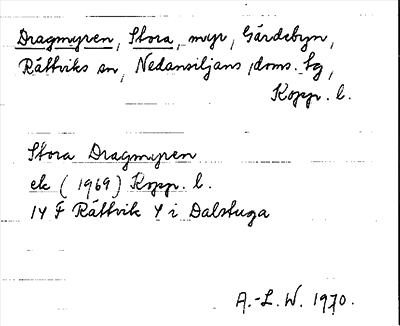 Dragmyren, Stora, myr, Gärdebyn,
Rättviks sn, Nedansiljans doms. tg,
Kopp. l.
Stora Dragmyren
ek (1969) Kopp. l.
14 F Rättvik 4 i Dalstuga
A.-L. W. 1970.